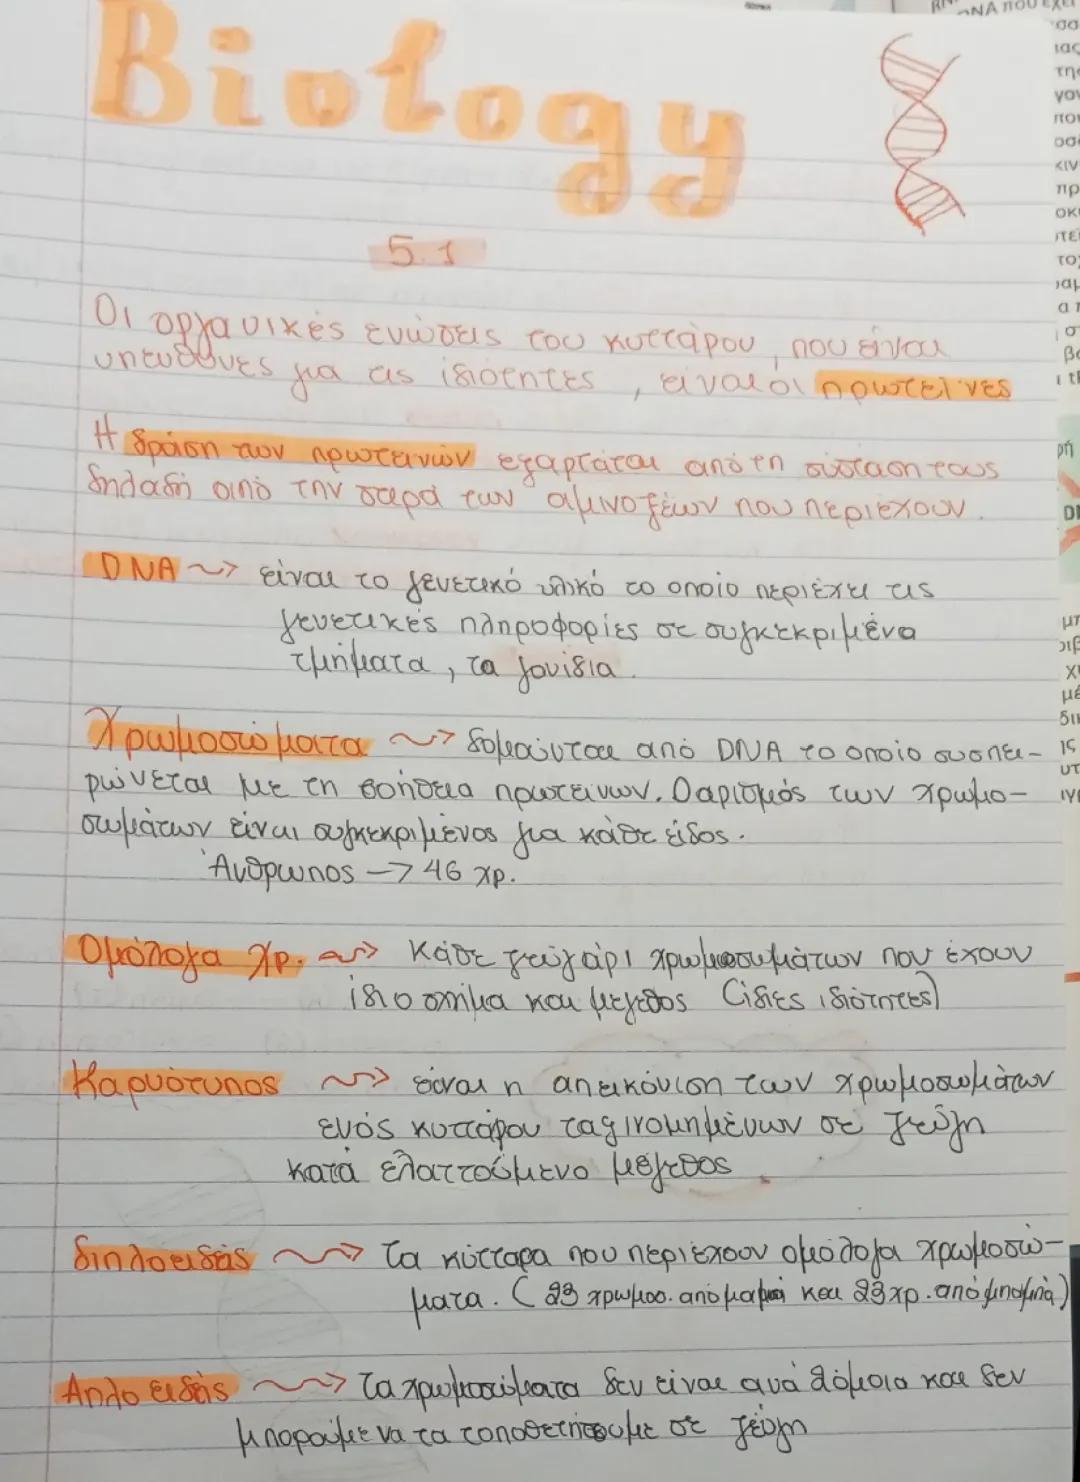 Biology
5.1
Οι οργανικές ενώσεις του κυττάρου, που είναι
υπευθυνες για τις ιδιότητες, είναι οι πρωτεϊνες
Η δράση των πρωτεινών εξαρτάται από τη σύσταση τους
δηλαδή από την σειρά των αμινοξέων που περιέχουν.
DNA ~> είναι το γενετικό υλικό το οποίο περιέχει τις
γενετικές πληροφορίες σε συγκεκριμένα
τμήματα, τα γονίδια.
Χρωμοσώματα ~> δομούνται από DNA το οποίο συσπει-
ρώνεται με τη βοήθεια πρωτεινων. Ο αριθμός των χρωμο-
σωμάτων είναι συγκεκριμένος για κάθε είδος.
Άνθρωπος -> 46 χρ.
Ομόλογα χρ. ~> κάθε ζευγάρι χρωμοσωμάτων που έχουν
ίδιο σχήμα και μέγεθος (ίδιες ιδιότητες)
Καρυότυπος ~> είναι η απεικόνιση των χρωμοσωμάτων
ενός κυττάρου ταξινομημένων σε ζεύγη
κατά ελαττούμενο μέγεθος
διπλοειδής ~> Τα κύτταρα που περιέχουν ομόλογα χρωμοσώ-
ματα. (23 χρωμοσ. από μαμά και 23 χρ. από μπαμπά)
Απλοειδής ~> Τα χρωμοσώματα δεν είναι ανά 2 όμοια και δεν
μπορούμε να τα τοποθετήσουμε σε ζεύγη